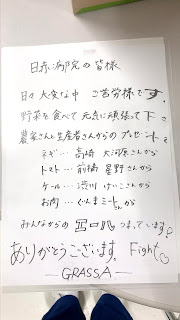 日赤病院の皆様
日々大変な中 ご苦労様です。
野菜を食べて元気に頑張って下さ
農家さんと生産者さんからのプレゼント
ネギ…高崎 大河原さんから
トマト…前橋 星野さんから
ケール…渋川 けいこさんから
お肉…ぐんまミートさんから
みんなからの エールつまっています!
ありがとうございます。Fight
―GRASSA―